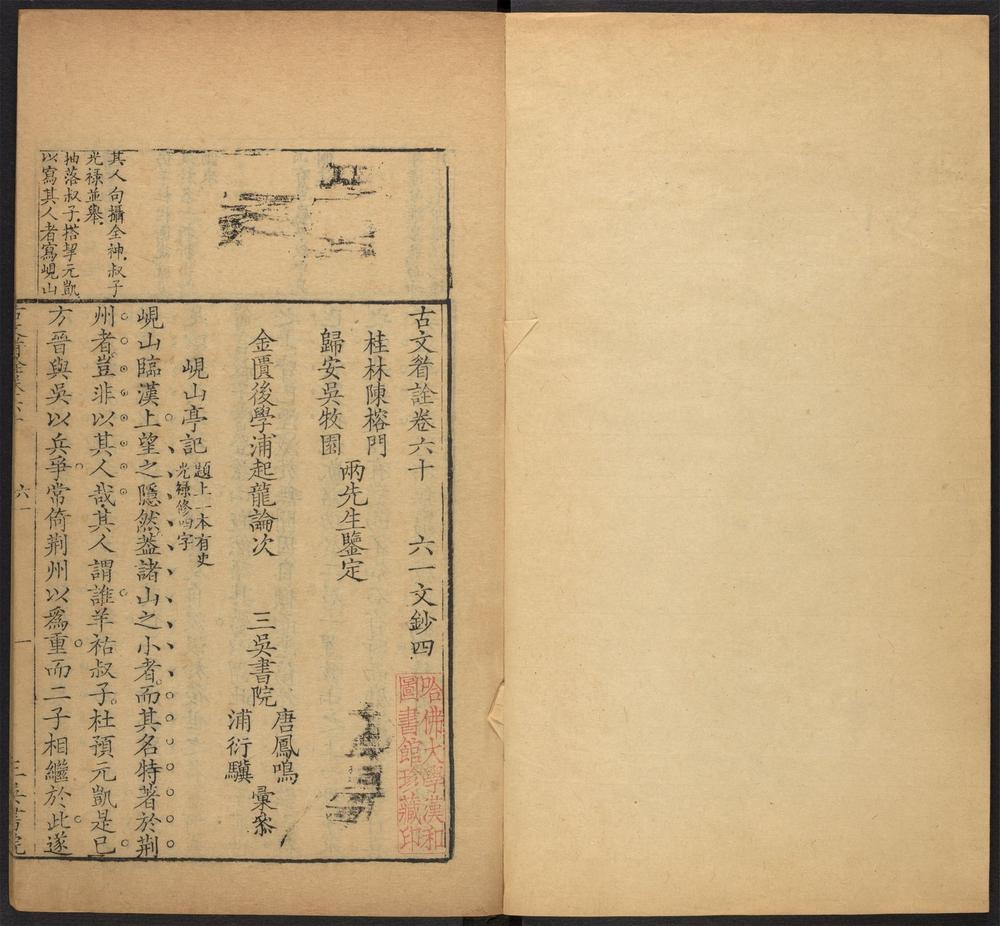 古文眉詮卷六十　六一文鈔四
桂林陳榕門
歸安吳牧園
兩先生鑒定
金匱後學浦起龍論次
三吳書院
唐鳳鳴
浦衍驥
彙叅
峴山亭記
題上一本有史
光祿修四字
峴山臨漢上望之隱然葢諸山之小者而其名特著於荆
州者豈非以其人哉其人謂誰羊祜叔子杜預元凱是已
方晉與吳以兵爭常倚荆州以爲重而二子相繼於此遂
其人句攝全神叔子
光祿並舉
抽落叔子搭挈元凱
以寫其人者寫峴山
六一
一
三吳書院
哈佛大學漢和
圖書館珍藏印